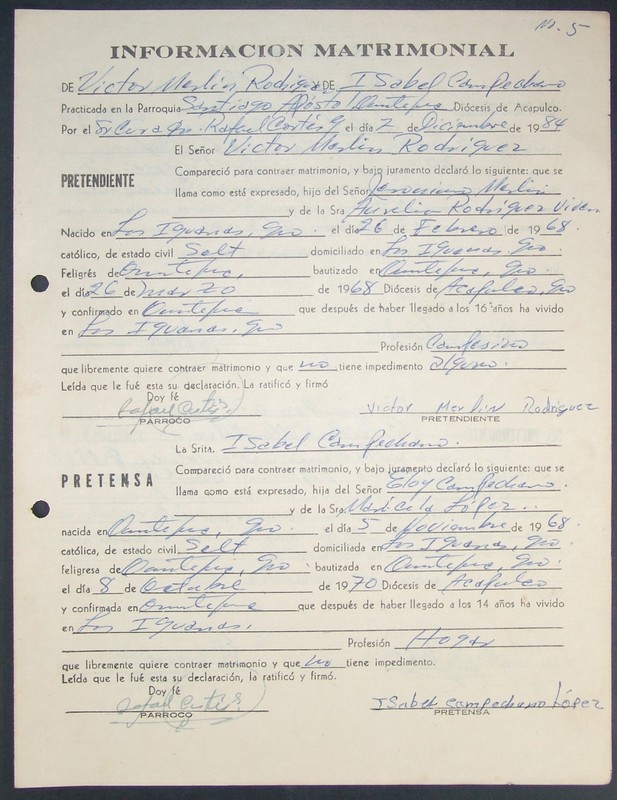 No. 5
INFORMACION MATRIMONIAL
DE Victor Merlin Rodriguez Y DE Isabel Campechano
Practicada en la Parroquia Santiago Apóstol Diócesis de Acapulco.
Por el Sr Cura Dn. Rafael Cortés G el día 2 de Diciembre de 1984
El Señor Victor Merlin Rodriguez
PRETENDIENTE
Compareció para contraer matrimonio, y bajo juramento declaró lo siguiente: que se
llama como está expresado, hijo del Señor Merlin
y de la Sra Aurelia Rodriguez
Nacido en Los Iguanas, Gro. el día 26 de Febrero de 1968.
católico, de estado civil Solt domiciliado en Los Iguanas, Gro.
Feligrés de bautizado en Gro.
el día 26 de Marzo de 1968 Diócesis de Acapulco, Gro
y confirmado en que después de haber llegado a los 16 años ha vivido
en Los Iguanas, Gro
Profesión Campesino
que libremente quiere contraer matrimonio y que no tiene impedimento alguno.
Leída que le fué esta su declaración. La ratificó y firmó
Doy fé
Rafael Cortés G Victor Merlin Rodriguez
PARROCO PRETENDIENTE
La Srita. Isabel Campechano.
PRETENSA
Compareció para contraer matrimonio, y bajo juramento declaró lo siguiente: que se
llama como está expresado, hija del Señor Eloy Campechano.
y de la Sra Maricela López.
nacida en Gro. el día 5 de Noviembre de 1968.
católica, de estado civil Solt domiciliada en Los Iguanas, Gro.
feligresa de Gro. bautizada en Gro.
el día 8 de Octubre de 1970 Diócesis de Acapulco
y confirmada en que después de haber llegado a los 14 años ha vivido
en Los Iguanas.
Profesión Hogar
que libremente quiere contraer matrimonio y que no tiene impedimento.
Leída que le fué esta su declaración, la ratificó y firmó.
Doy fé
Rafael Cortés G Isabel Campechano López
PARROCO PRETENSA